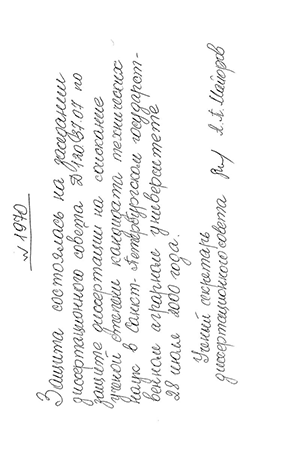 № 1970
Защита состоялась на заседании
диссертационного совета Д 120.37.07 по
защите диссертации на соискание
ученой степени кандидата технических
наук в Санкт-Петербургском государст-
венном аграрном университете
28 июля 2000 года.
Ученый секретарь
диссертационного совета А.А. Майоров